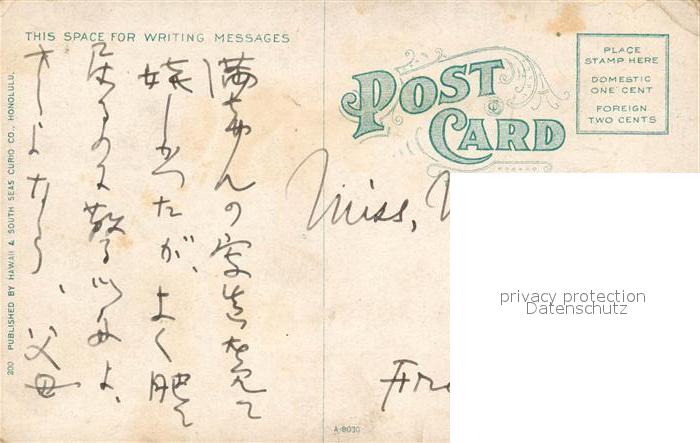 THIS SPACE FOR WRITING MESSAGES
満ちゃんの写真を見て
しかったが、よく肥て
居るのに
さよなら、父母
200 PUBLISHED BY HAWAII & SOUTH SEAS CURIO CO., HONOLULU.
POST
CARD
PLACE
STAMP HERE
DOMESTIC
ONE CENT
FOREIGN
TWO CENTS
Miss,
Fr
A-8030
privacy protection
Datenschutz